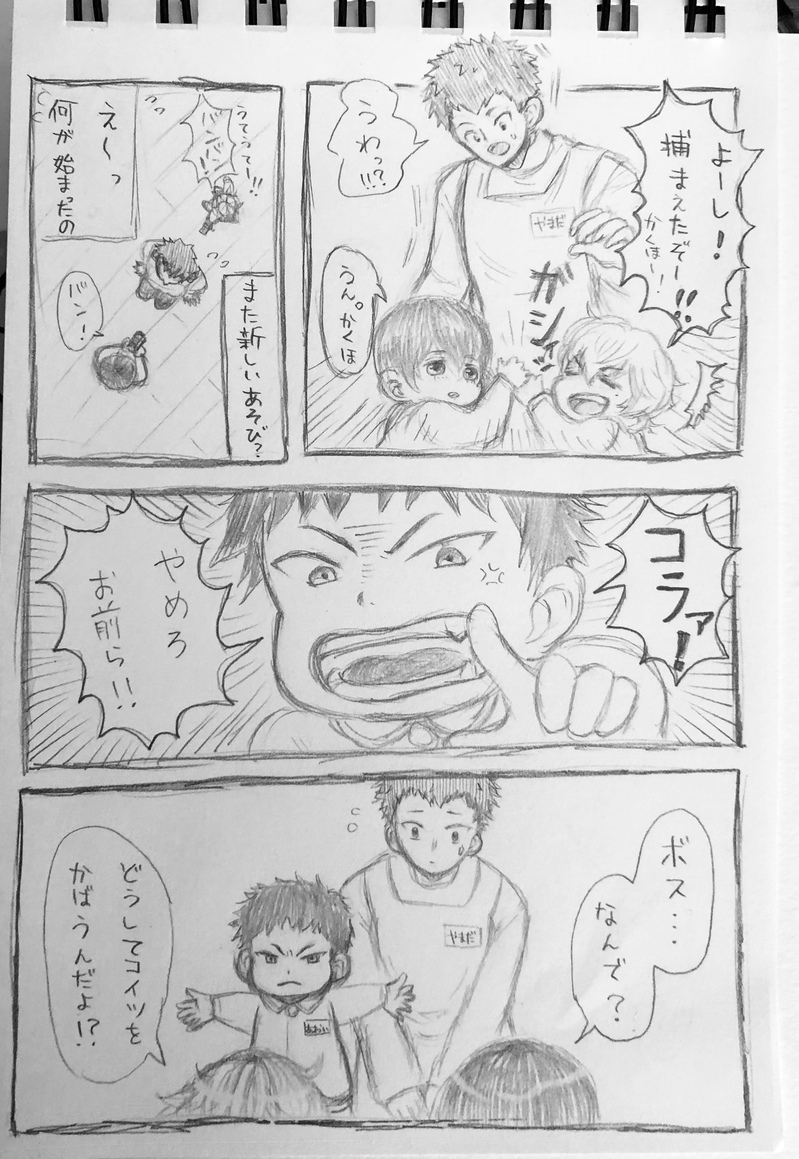 よーし!
捕まえたぞー!!
かくほー!
うわっ!!?
やまだ
ガシィッ
うん。かくほ
うてうてー!!
バンバン
また新しいあそび?
バン!
え〜っ
何が始まったの
コラァ!
やめろ
お前ら!!
ボス…
なんで?
やまだ
あおい
どうしてコイツを
かばうんだよ!?